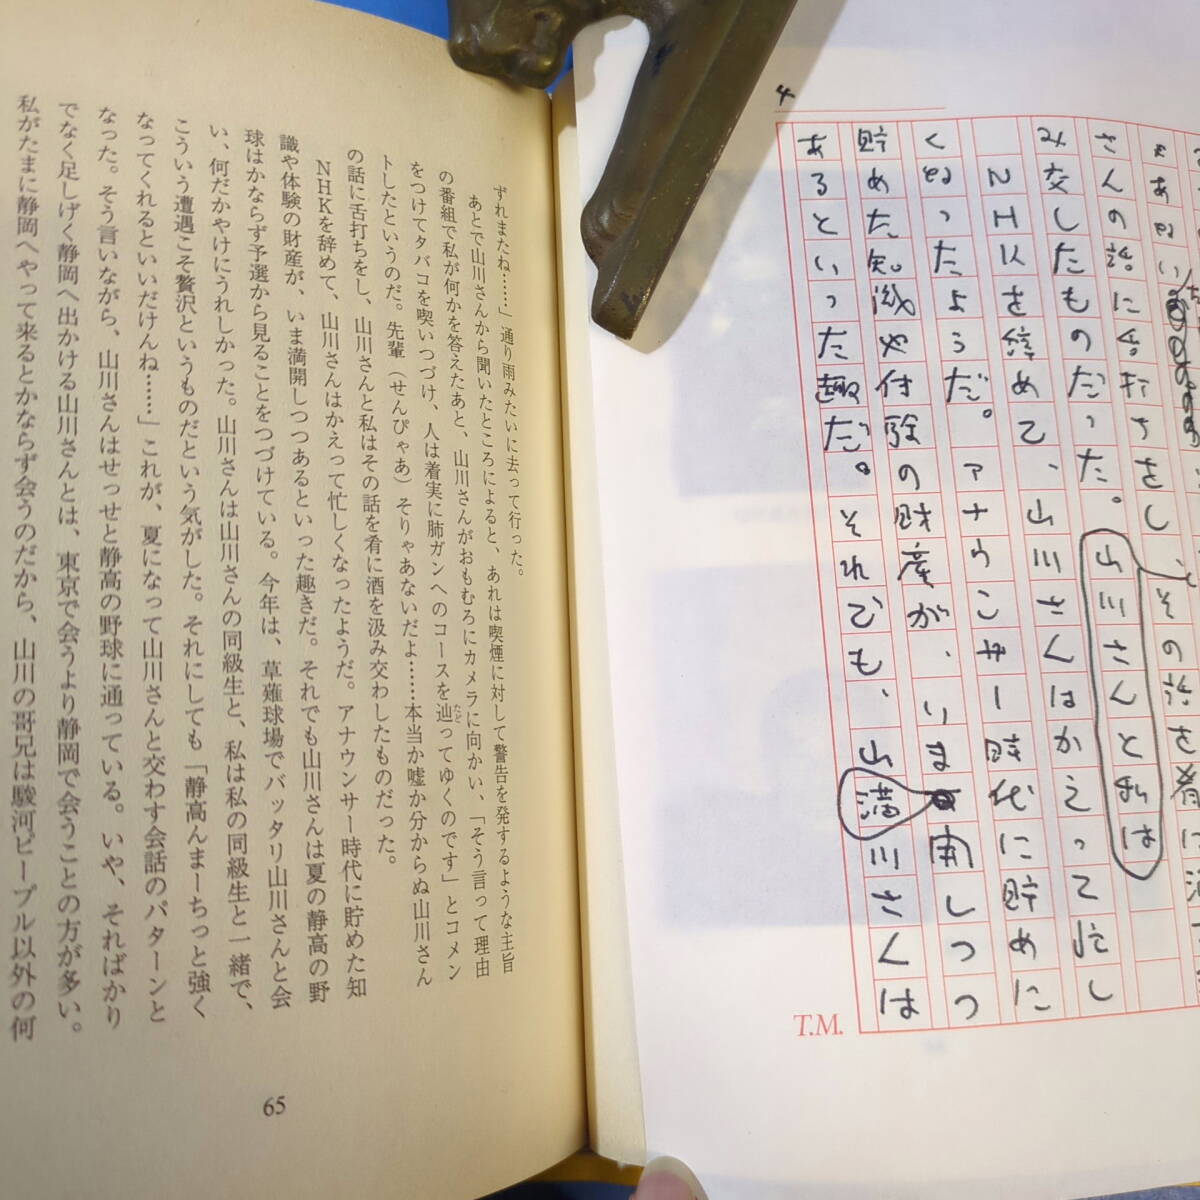 さんの話に舌打ちをし、その話を肴に酒
み交したものだった。山川さんと私は
NHKを辞めて、山川さんはかえって忙し
くなったようだ。アナウンサー時代に貯めに
貯めた知識や体験の財産が、いま満開しつつ
あるといった趣だ。それでも、山川さんは
4
T.M.
ずれまたね……」通り雨みたいに去って行った。
あとで山川さんから聞いたところによると、あれは喫煙に対して警告を発するような主旨
の番組で私が何かを答えたあと、山川さんがおもむろにカメラに向かい、「そう言って理由
をつけてタバコを喫いつづけ、人は着実に肺ガンへのコースを辿ってゆくのです」とコメン
トしたというのだ。先輩（せんぴゃあ）そりゃあないだよ……本当か嘘か分からぬ山川さん
の話に舌打ちをし、山川さんと私はその話を肴に酒を汲み交わしたものだった。
NHKを辞めて、山川さんはかえって忙しくなったようだ。アナウンサー時代に貯めた知
識や体験の財産が、いま満開しつつあるといった趣きだ。それでも山川さんは夏の静高の野
球はかならず予選から見ることをつづけている。今年は、草薙球場でバッタリ山川さんと会
い、何だかやけにうれしかった。山川さんは山川さんの同級生と、私は私の同級生と一緒で、
こういう遭遇こそ贅沢というものだという気がした。それにしても「静高んまーちっと強く
なってくれるといいだけんね……」これが、夏になって山川さんと交わす会話のパターンと
なった。そう言いながら、山川さんはせっせと静高の野球に通っている。いや、そればかり
でなく足しげく静岡へ出かける山川さんとは、東京で会うより静岡で会うことの方が多い。
私がたまに静岡へやって来るとかならず会うのだから、山川の哥兄は駿河ピープル以外の何
65